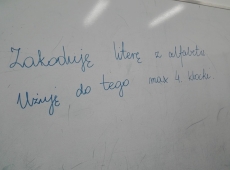 Zakoduję literę z alfabetu
Użyję do tego max 4 klocki